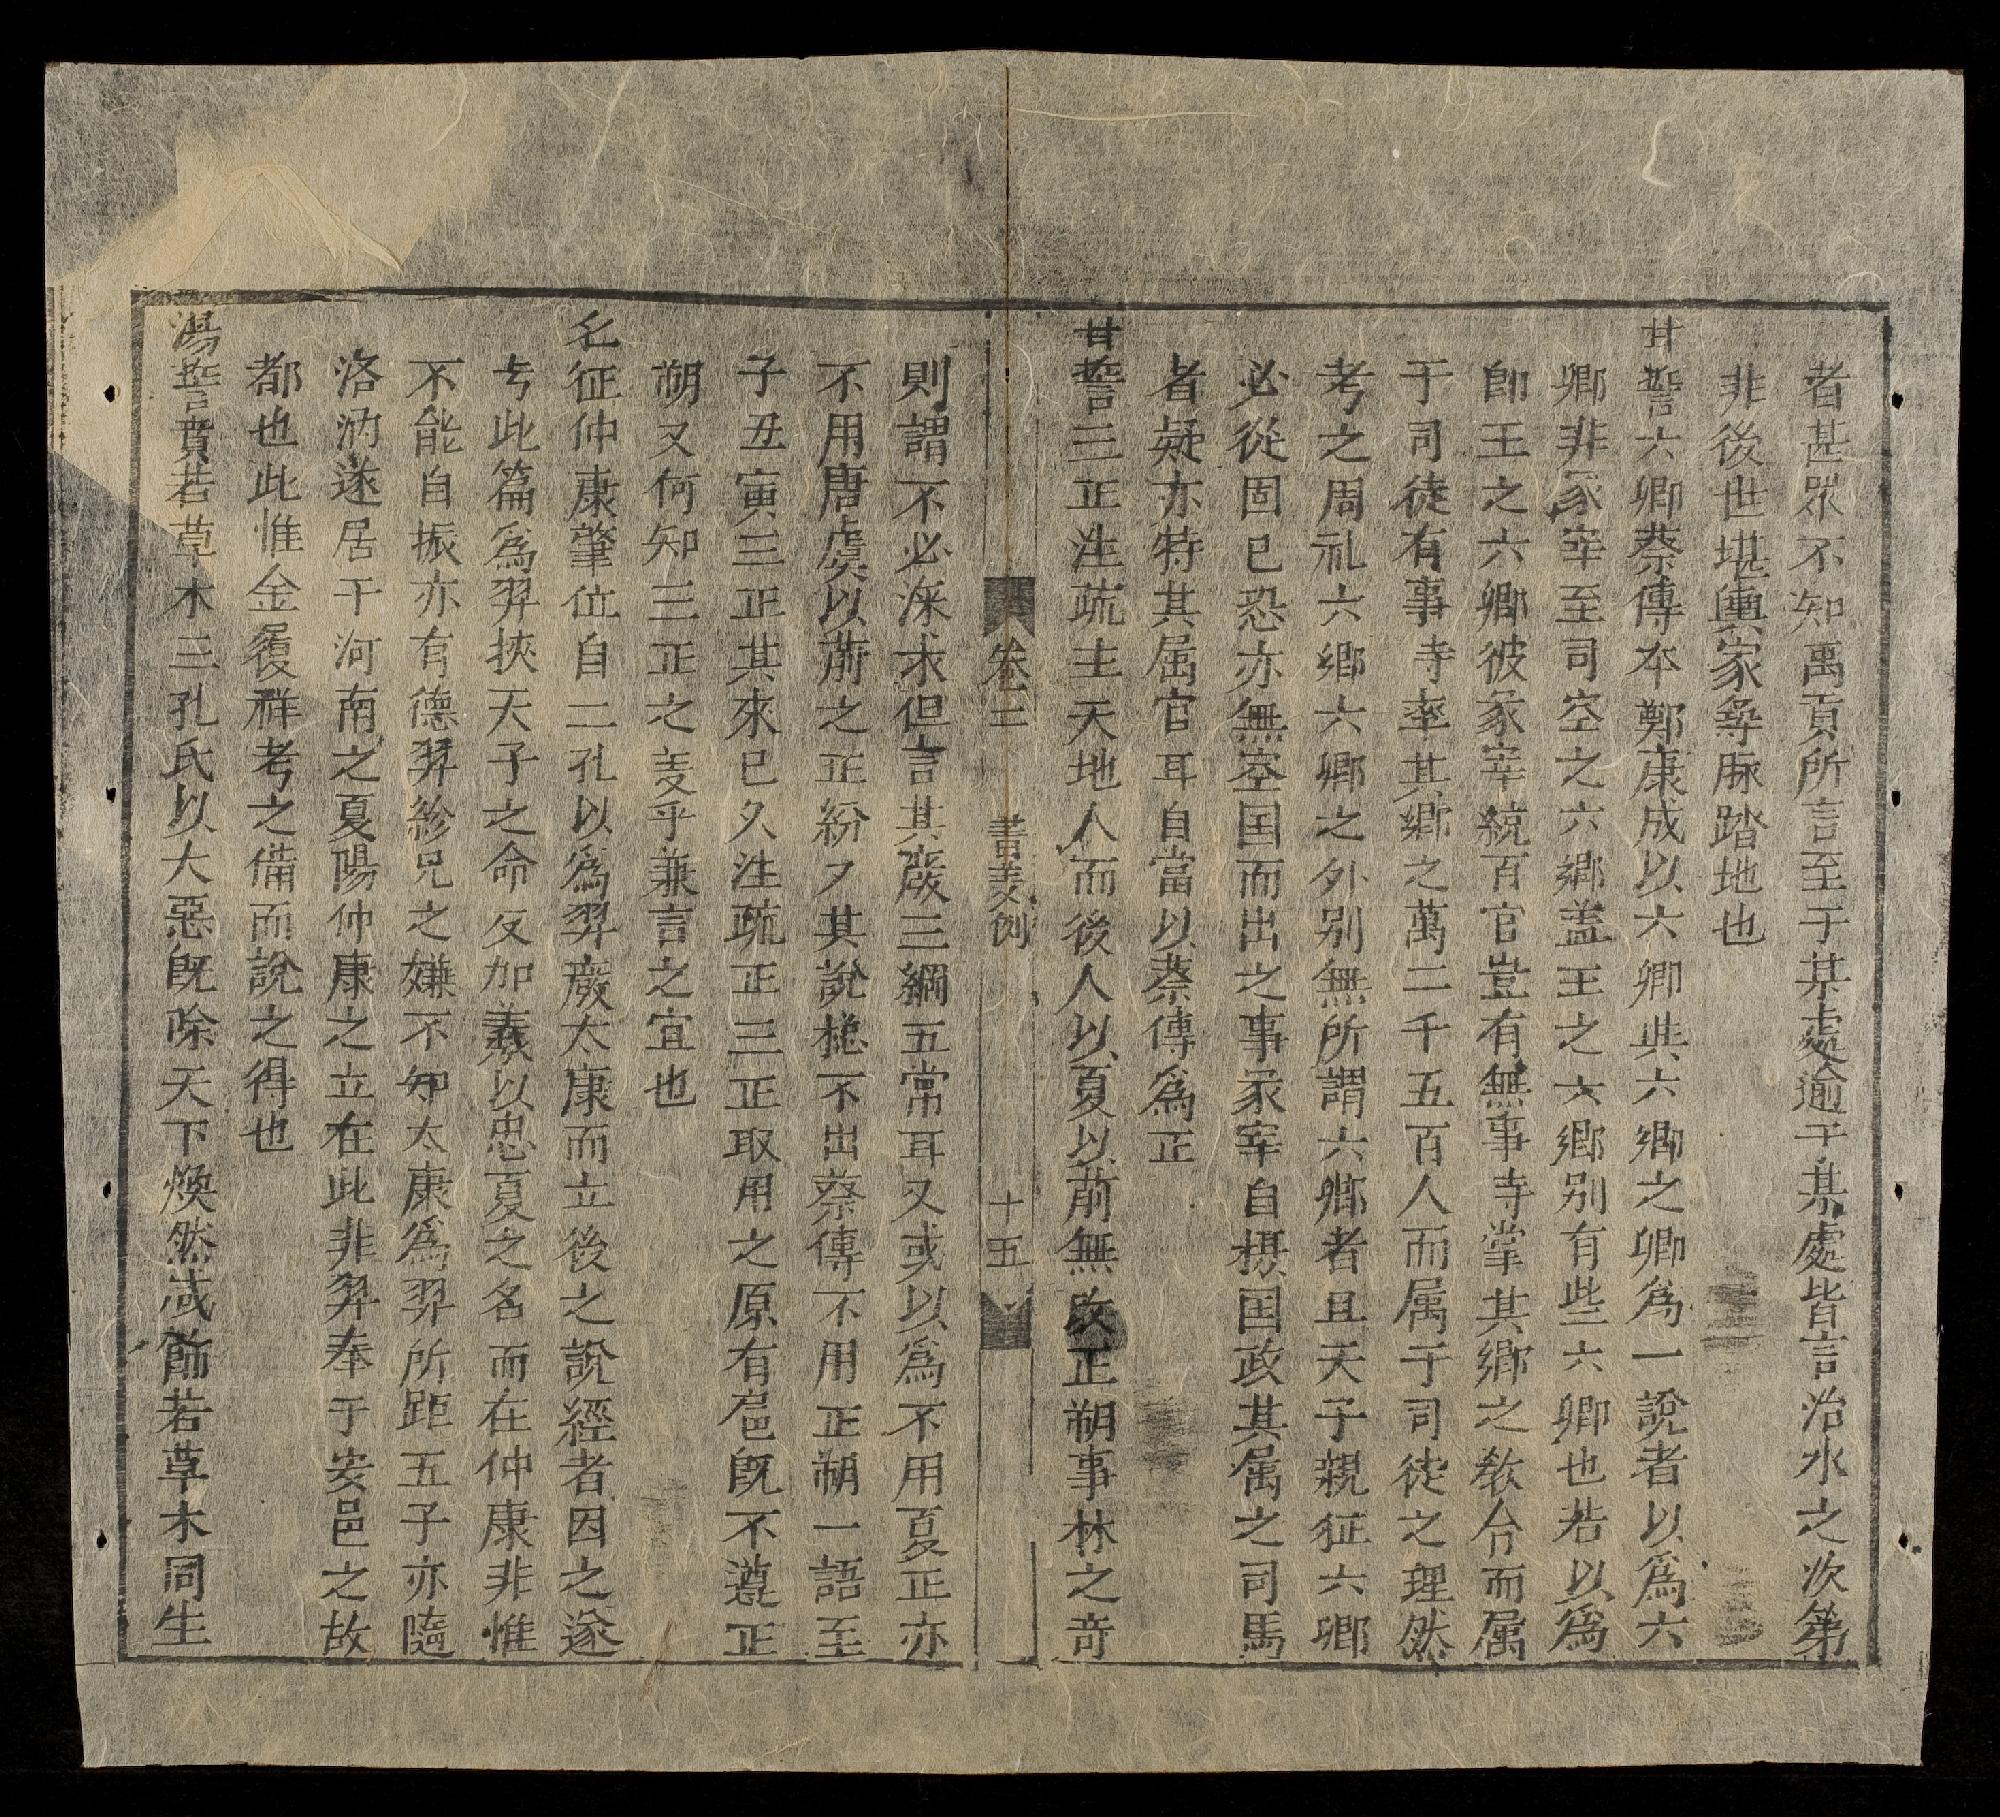 者甚眾不知禹貢所言至于某處逾于某處皆言治水之次第
非後世堪輿家尋脉踏地也
甘誓六卿蔡傳本鄭康成以六卿與六鄉之卿爲一說者以爲六
卿非冢宰至司空之六鄉盖王之六鄉别有些六卿也若以爲
卽王之六卿彼冢宰統百官豈有無事寺掌其鄉之教令而属
于司徒有事寺率其鄉之萬二千五百人而属于司徒之理然
考之周礼六鄉六卿之外别無所謂六鄉者且天子親征六卿
必從固已恐亦無空国而出之事冢宰自摄国政其属之司馬
者疑亦特其属官耳自當以蔡傳爲正
甘誓三正注疏主天地人而後人以夏以前無改正朔事林之奇
卷二 書義例 十五
則謂不必深求但言其廢三綱五常耳又或以爲不用夏正亦
不用唐虞以前之正紛々其說揔不出蔡傳不用正朔一語至
子丑寅三正其來已久注疏正三正取用之原有扈旣不遵正
朔又何知三正之義乎兼言之宜也
仲康肇位自二孔以爲羿廢太康而立後之說經者因之遂
此篇爲羿挾天子之命反加羲以忠夏之名而在仲康非惟
不能自振亦有德羿紾兄之嫌不知太康爲羿所距五子亦隨
洛汭遂居于河南之夏陽仲康之立在此非羿奉于安邑之故
都也此惟金履祥考之備而說之得也
湯誓賁若草木三孔氏以大惡旣除天下煥然咸飾若草木同生